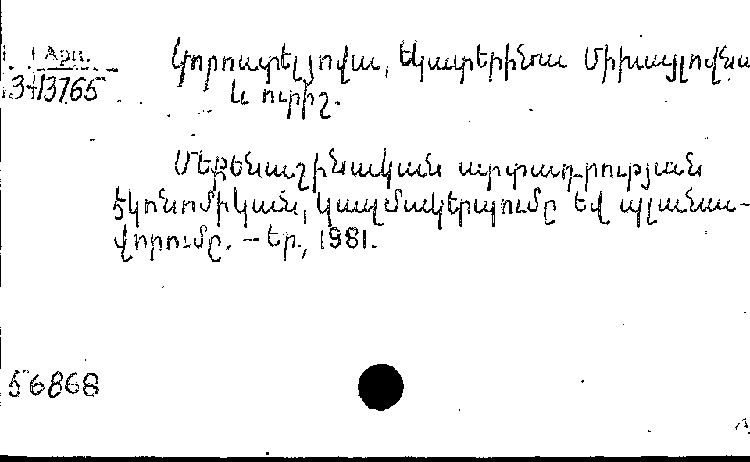 1 Арм.
34/3765
Կորոստելյովա, Եկատերինա Միխայլովնա
և ուրիշ.
Մեքենաշինական արտադրության
էկոնոմիկան, կազմակերպումը եվ պլանա-
վորումը. – Եր., 1981.
56868